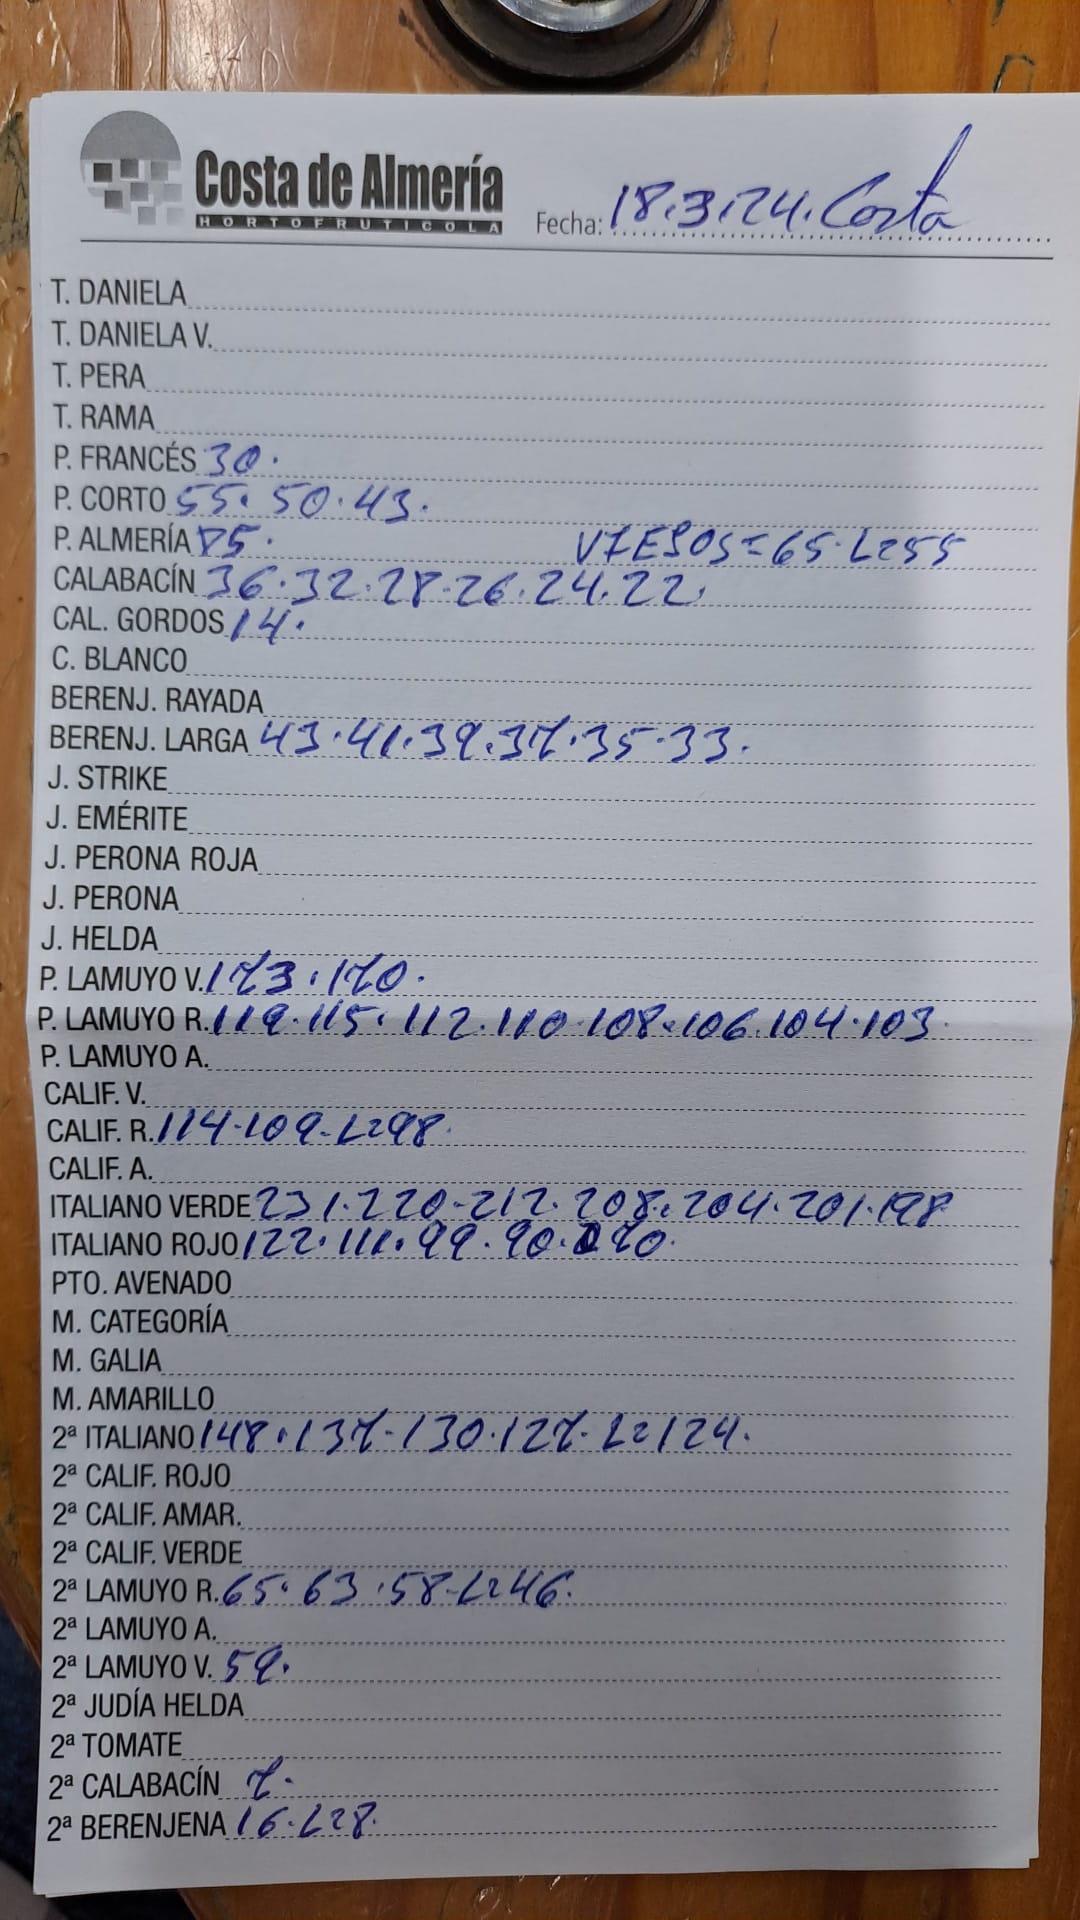 Costa de Almería
HORTOFRUTICOLA
Fecha: 18.3.24. Costa
T. DANIELA
T. DANIELA V.
T. PERA
T. RAMA
P. FRANCÉS 30.
P. CORTO 55. 50. 43.
P. ALMERÍA 85. VIESOS = 65. L=55
CALABACÍN 36. 32. 28. 26. 24. 22.
CAL. GORDOS 14.
C. BLANCO
BERENJ. RAYADA
BERENJ. LARGA 43. 41. 39. 37. 35. 33.
J. STRIKE
J. EMÉRITE
J. PERONA ROJA
J. PERONA
J. HELDA
P. LAMUYO V. 173. 170.
P. LAMUYO R. 119. 115. 112. 110. 108. 106. 104. 103.
P. LAMUYO A.
CALIF. V.
CALIF. R. 114. 109. L=98.
CALIF. A.
ITALIANO VERDE 231. 220. 212. 208. 204. 201. 198
ITALIANO ROJO 122. 111. 99. 90. 70.
PTO. AVENADO
M. CATEGORÍA
M. GALIA
M. AMARILLO
2ª ITALIANO 148. 137. 130. 127. L=124.
2ª CALIF. ROJO
2ª CALIF. AMAR.
2ª CALIF. VERDE
2ª LAMUYO R. 65. 63. 58. L=46.
2ª LAMUYO A.
2ª LAMUYO V. 59.
2ª JUDÍA HELDA
2ª TOMATE
2ª CALABACÍN 7.
2ª BERENJENA 16. L=8.